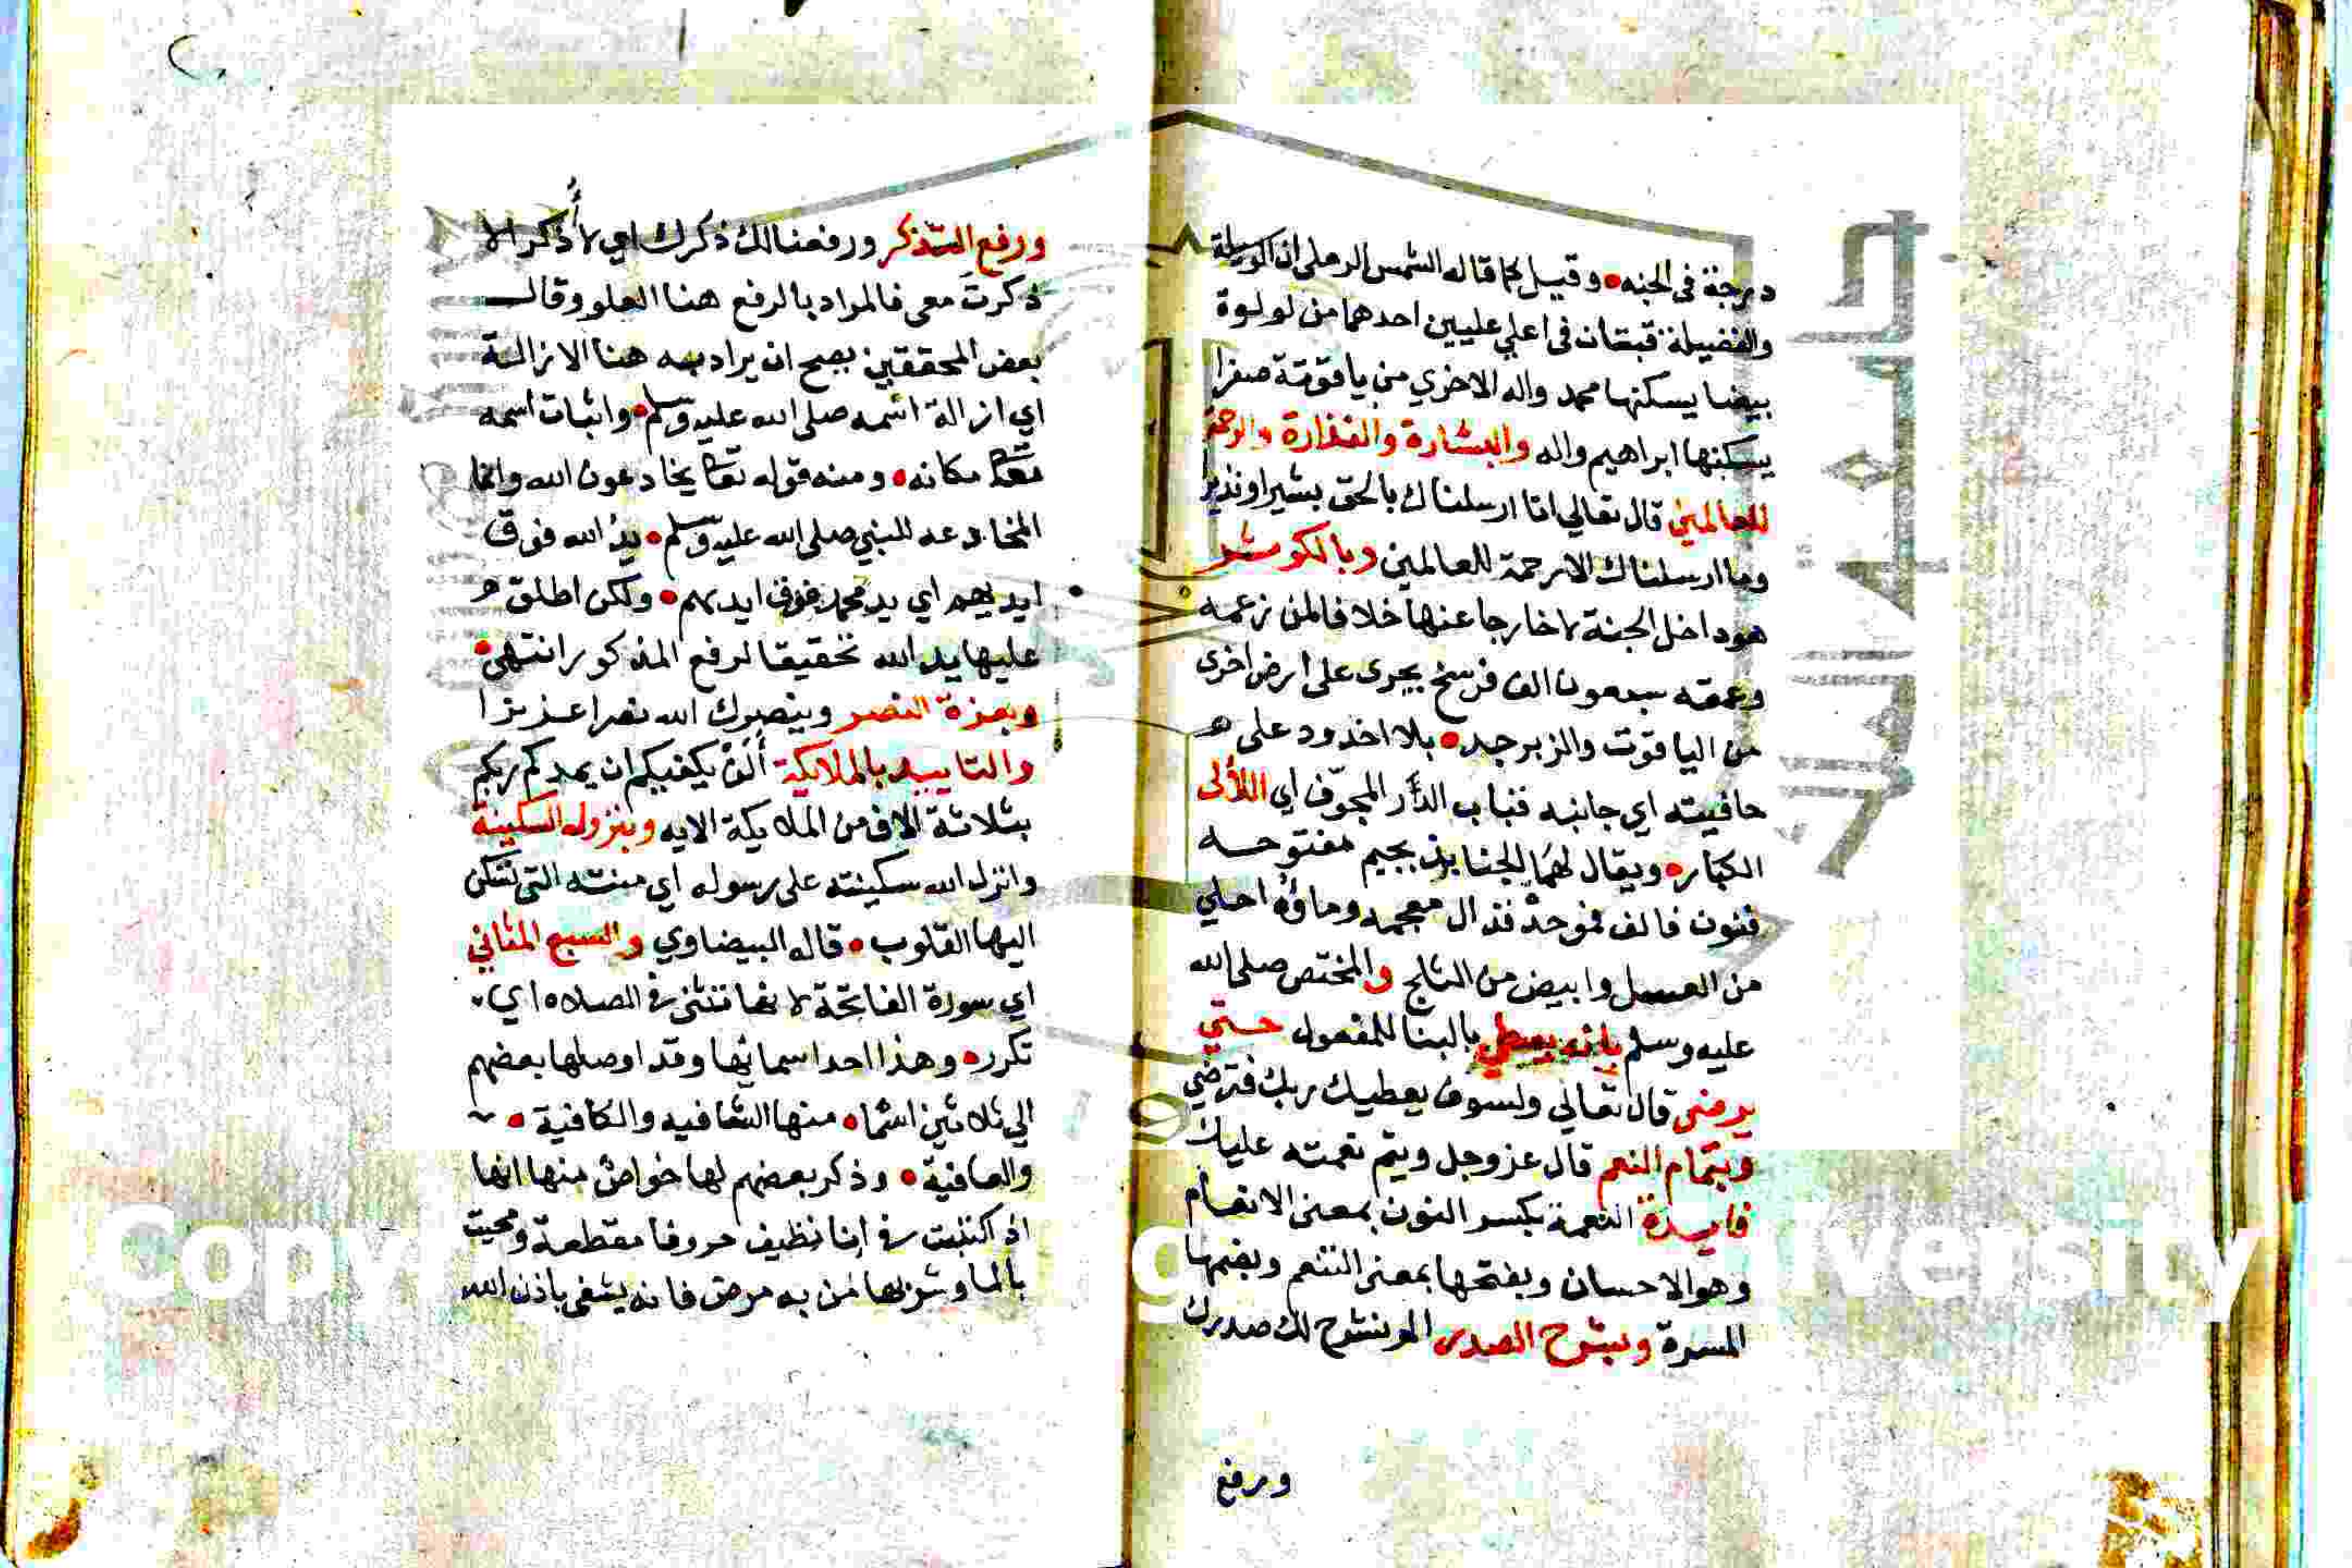 درجة في الجنه • وقيل كما قاله الشمس الرملي ان الوسيلة
والفضيلة قبتان في اعلي عليين احدهما من لولوة
بيضا يسكنها محمد واله الاخري من ياقوتة صفرا
يسكنها ابراهيم واله والبشارة والنذارة والرحمة
للعالمين قال تعالي انا ارسلناك بالحق بشيرا ونذيرا
وما ارسلناك الا رحمة للعالمين وبالكوثر
هو داخل الجنة لا خارجا عنها خلافا لمن زعمه
وعمقه سبعون الف فرسخ يجرى على ارض اخرى
من الياقوت والزبرجد • بلا اخدود على
حافيته اي جانبه قباب الدر المجوّف اي اللألى
الكبار • ويقال لها الجنابذ بجيم مفتوحه
فنون فالف فموحدة فذال معجمه وماؤه احلي
من العسل وابيض من الثلج والمختص صلى الله
عليه وسلم بانه يعطي بالبنا للمفعول حتي
يرضى قال تعالي ولسوف يعطيك ربك فترضي
وبتمام النعم قال عز وجل ويتم نعمته عليك
فايدة النعمة بكسر النون بمعنى الانعام
وهو الاحسان وبفتحها بمعنى التنعم وبضمها
المسرة وبشرح الصدر الم نشرح لك صدرك
ورفع
ورفع الذكر ورفعنا لك ذكرك اي لا أُذكر الا
ذكرتَ معي فالمراد بالرفع هنا العلو وقال
بعض المحققين يصح ان يراد به هنا الازالة
اي ازالة اسمه صلى الله عليه وسلم • واثبات اسمه
تعالى مكانه • ومنه قوله تعالى يخادعون الله وانما
المخادعه للنبي صلى الله عليه وسلم • يد الله فوق
ايديهم اي يد محمد فوق ايديهم • ولكن اطلق
عليها يد الله تحقيقا لرفع المذكور انتهى •
وبعزة النصر وينصرك الله نصرا عزيزا
والتاييد بالملايكة ألن يكفيكم ان يمدكم ربكم
بثلاثة الاف من الملايكة الايه وبنزول السكينة
وانزل الله سكينته على رسوله اي منته التي تسكن
اليها القلوب • قاله البيضاوي والسبع المثاني
اي سورة الفاتحة لانها تثنى في الصلاه اي
تكرر • وهذا احد اسمائها وقد اوصلها بعضهم
الي ثلاثين اسما • منها الشافيه والكافية •
والعافية • وذكر بعضهم لها خواص منها انها
اذ اكتبت في انا نظيف حروفا مقطعة ومحيت
بالما وشربها من به مرض فانه يشفى باذن الله